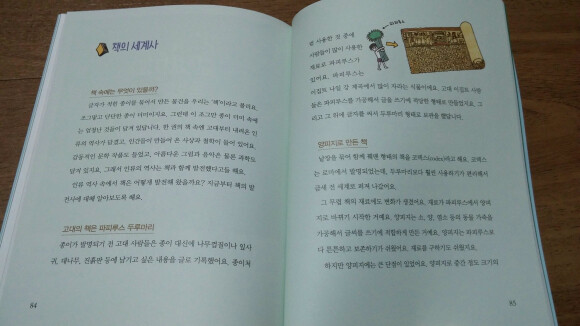 책의 세계사
책 속에는 무엇이 있을까?
글자가 적힌 종이를 묶어서 만든 물건을 우리는 '책'이라고 불러요.
조그맣고 단단한 종이 더미이지요. 그런데 이 조그만 종이 더미 속에
는 엄청난 것들이 담겨 있답니다. 한 권의 책 속엔 고대부터 내려온 인
류의 역사가 담겼고, 인간들이 만들어 온 사상과 철학이 들어 있어요.
감동적인 문학 작품도 있었고, 아름다운 그림과 음악은 물론 과학도
담겨 있지요. 그래서 인류의 역사는 책과 함께 발전했다고들 해요.
인류 역사 속에서 책은 어떻게 발전해 왔을까요? 지금부터 책의 발
전사에 대해 알아보도록 해요.
고대의 책은 파피루스 두루마리
종이가 발명되기 전 고대 사람들은 종이 대신에 나무껍질이나 잎사
귀, 대나무, 진흙판 등에 남기고 싶은 내용을 글로 기록했어요. 종이처
84
럼 사용한 것 중에
사람들이 많이 사용한
재료로 파피루스가
있어요. 파피루스는
이집트 나일 강 계곡에서 많이 자라는 식물이에요. 고대 이집트 사람
들은 파피루스를 가공해서 글을 쓰기에 적당한 형태로 만들었지요. 그
리고 그 위에 글자를 써서 두루마리 형태로 보관을 했답니다.
파피루스
양피지로 만든 책
낱장을 묶어 함께 꿰맨 형태의 책을 코덱스(codex)라고 해요. 코덱스
는 로마에서 발명되었는데, 두루마리보다 훨씬 사용하기가 편리해서
금세 전 세계로 퍼져 나갔어요.
그 무렵 책의 재료에도 변화가 생겼어요. 재료가 파피루스에서 양피
지로 바뀌기 시작한 거예요. 양피지는 소, 양, 염소 등의 동물 가죽을
가공해서 글씨를 쓰기에 적합하게 만든 거예요. 양피지는 파피루스보
다 튼튼하고 보존하기가 쉬웠어요. 재료를 구하기도 쉬웠지요.
하지만 양피지에는 큰 단점이 있었어요. 양피지로 중간 정도 크기의
85